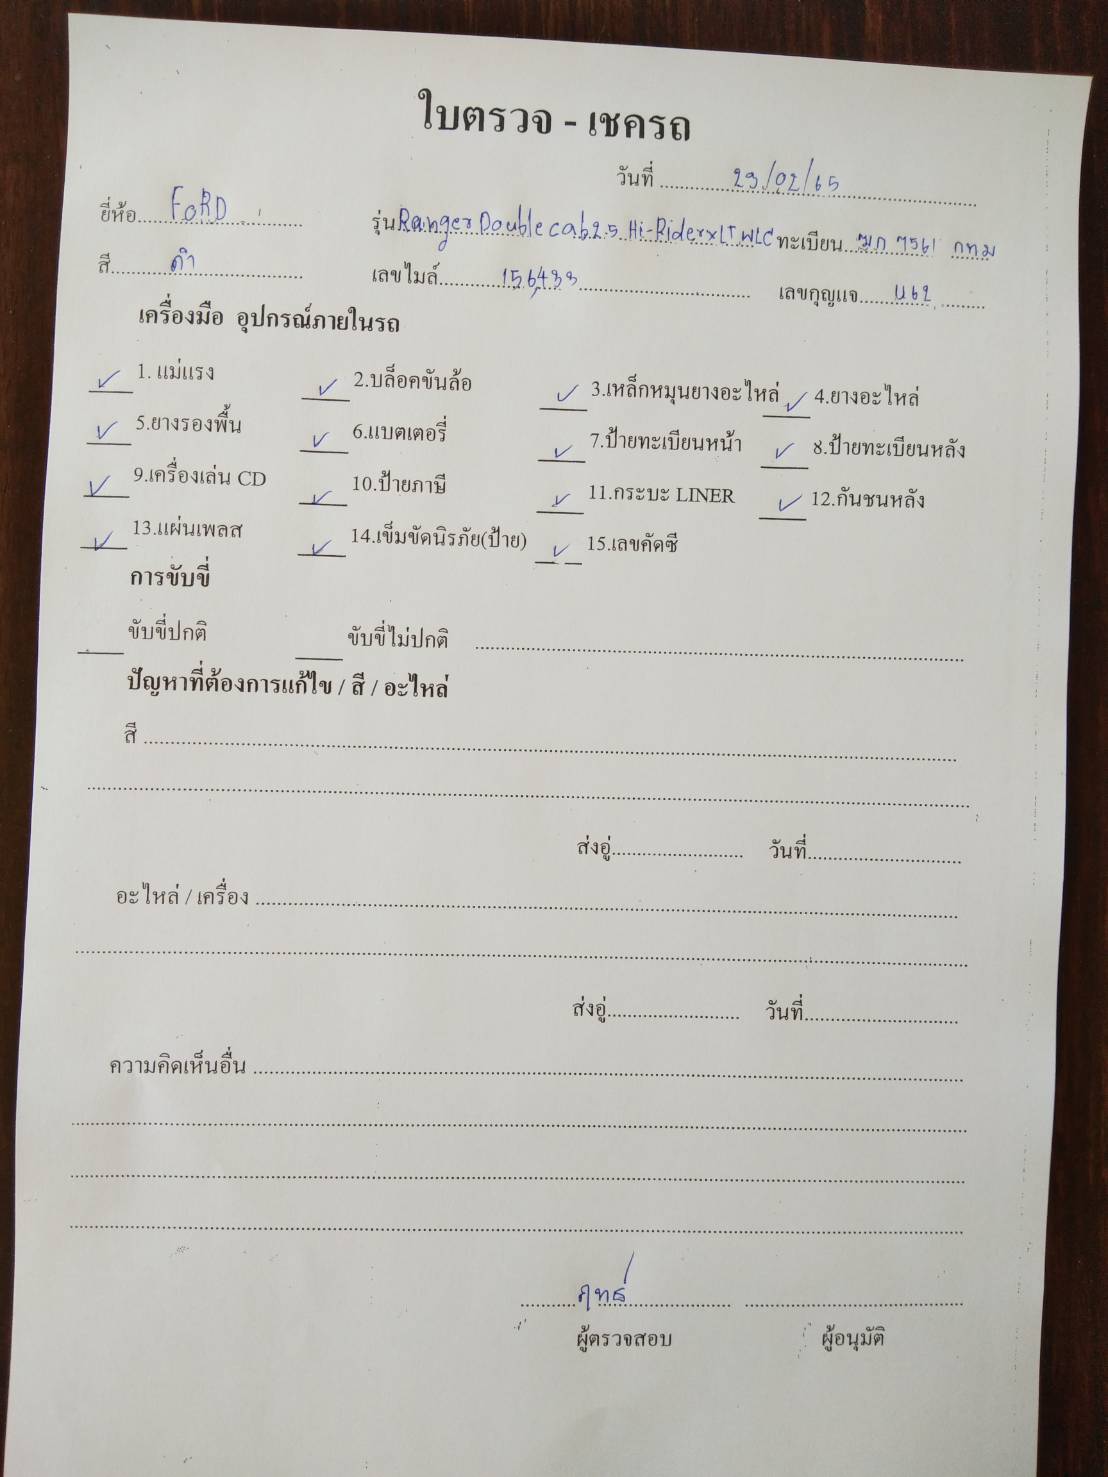 ใบตรวจ - เชครถ
วันที่ 23/02/65
ยี่ห้อ FORD รุ่น Ranger Double cab 2.5 Hi-Rider XLT WLC ทะเบียน ฒก 7561 กทม
สี ดำ เลขไมล์ 156,433 เลขกุญแจ U62
เครื่องมือ อุปกรณ์ภายในรถ
✓ 1. แม่แรง ✓ 2.บล็อคขันล้อ ✓ 3.เหล็กหมุนยางอะไหล่ ✓ 4.ยางอะไหล่
✓ 5.ยางรองพื้น ✓ 6.แบตเตอรี่ ✓ 7.ป้ายทะเบียนหน้า ✓ 8.ป้ายทะเบียนหลัง
✓ 9.เครื่องเล่น CD ✓ 10.ป้ายภาษี ✓ 11.กระบะ LINER ✓ 12.กันชนหลัง
✓ 13.แผ่นเพลส ✓ 14.เข็มขัดนิรภัย(ป้าย) ✓ 15.เลขคัดซี
การขับขี่
ขับขี่ปกติ ขับขี่ไม่ปกติ
ปัญหาที่ต้องการแก้ไข / สี / อะไหล่
สี
ส่งอู่ วันที่
อะไหล่ / เครื่อง
ส่งอู่ วันที่
ความคิดเห็นอื่น
ฤทธ์
ผู้ตรวจสอบ ผู้อนุมัติ